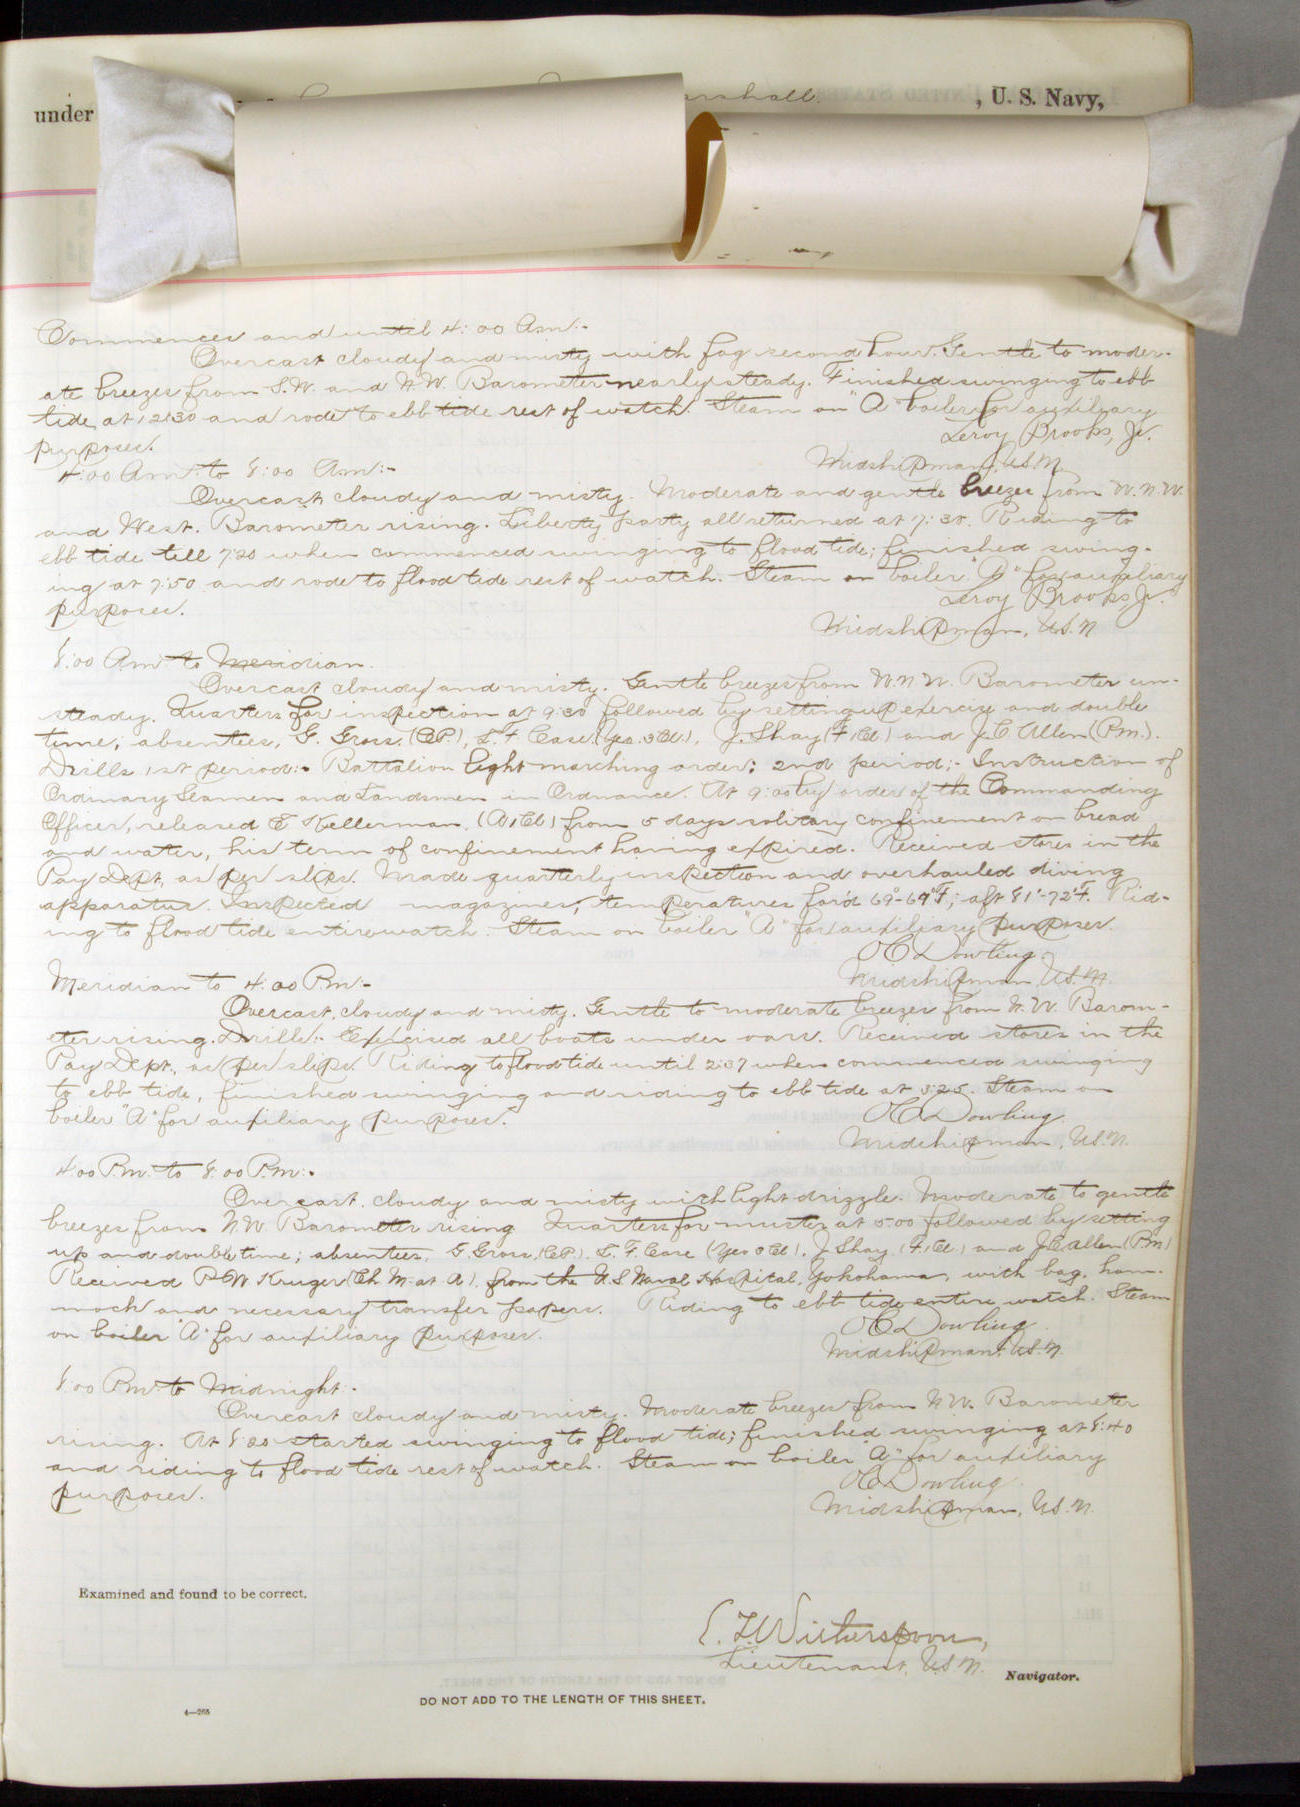 under
arshall.
, U. S. Navy,
Commences and until 4:00 Am:-
Overcast cloudy and misty with fog second hour. Gentle to moder-
ate breezes from S.W. and N.W. Barometer nearly steady. Finished swinging to ebb
tide at 12:30 and rode to ebb tide rest of watch. Steam on "A" boiler for auxiliary
purposes.
Leroy Brooks, Jr.
Midshipman, U.S.N.
4:00 Am. to 8:00 Am:-
Overcast cloudy and misty. Moderate and gentle breezes from W.N.W.
and West. Barometer rising. Liberty party all returned at 7:30. Riding to
ebb tide till 7:20 when commenced swinging to flood tide; finished swing-
ing at 7:50 and rode to flood tide rest of watch. Steam on boiler "A" for auxiliary
purposes.
Leroy Brooks, Jr.
Midshipman, U.S.N
8:00 Am to Meridian.
Overcast cloudy and misty. Gentle breezes from N.N.W. Barometer un-
steady. Quarters for inspection at 9:30 followed by setting up exercise and double
time; absentees, G. Gross (CP.), L. F. Case (Yeo. 3Cl.), J. Shay (F1Cl) and J.C. Allen (Pm.).
Drills 1st period:- Battalion light marching order: 2nd period:- Instruction of
Ordinary Seamen and Landsmen in Ordnance. At 9:00 by order of the Commanding
Officer, released E Kellerman, (A,Cl) from 5 days solitary confinement on bread
and water, his term of confinement having expired. Received stores in the
Pay Dept, as per slips. Made quarterly inspection and overhauled diving
apparatus. Inspected magazines; temperatures for'd 69°-69°F; aft 81°-72°F. Rid-
ing to flood tide entire watch. Steam on boiler "A" for auxiliary purposes.
O C Dowling
Midshipman, U.S.N.
Meridian to 4:00 Pm:-
Overcast, cloudy and misty. Gentle to moderate breezes from N.W. Barom-
eter rising. Drills:- Exercised all boats under oars. Received stores in the
Pay Dept, as per slips. Riding to flood tide until 2:37 when commenced swinging
to ebb tide, finished swinging and riding to ebb tide at 3:25. Steam on
boiler "A" for auxiliary purposes.
O C Dowling
Midshipman, U.S.N.
4:00 Pm. to 8:00 P.m:-
Overcast, cloudy and misty with light drizzle. Moderate to gentle
breezes from N.W. Barometer rising Quarters for muster at 5:00 followed by setting
up and double time; absentees, G. Gross, (CP.), L. F. Case (Yeo 3Cl), J Shay, (F,Cl.) and J.C. Allen (Pm)
Received P W Kruger (Ch. M. at A), from the U.S. Naval Hospital, Yokohama, with bag, ham-
mock and necessary transfer papers. Riding to ebb tide entire watch. Steam
on boiler "A" for auxiliary purposes.
O C Dowling
Midshipman, U.S.N.
8:00 Pm to Midnight:-
Overcast cloudy and misty. Moderate breezes from N.W. Barometer
rising. At 8:00 started swinging to flood tide; finished swinging at 8:40
and riding to flood tide rest of watch. Steam on boiler "A" for auxiliary
purposes.
O C Dowling
Midshipman, U.S.N.
Examined and found to be correct.
E. T. Witherspoon,
Lieutenant, U.S.N. Navigator.
DO NOT ADD TO THE LENGTH OF THIS SHEET.
4—265